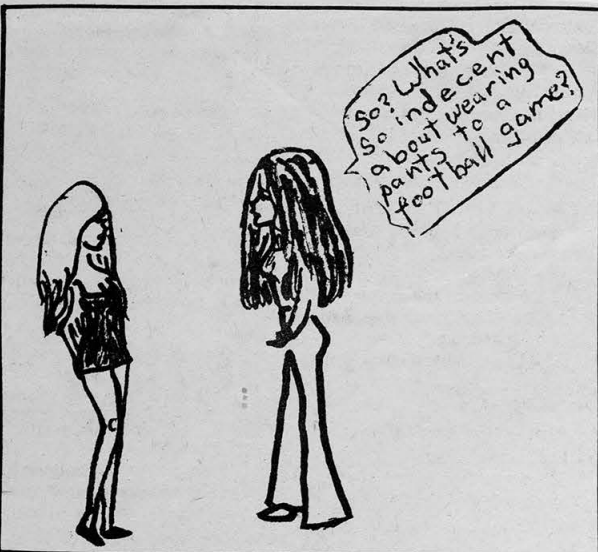 So? What's
so indecent
about wearing
pants to a
football game?